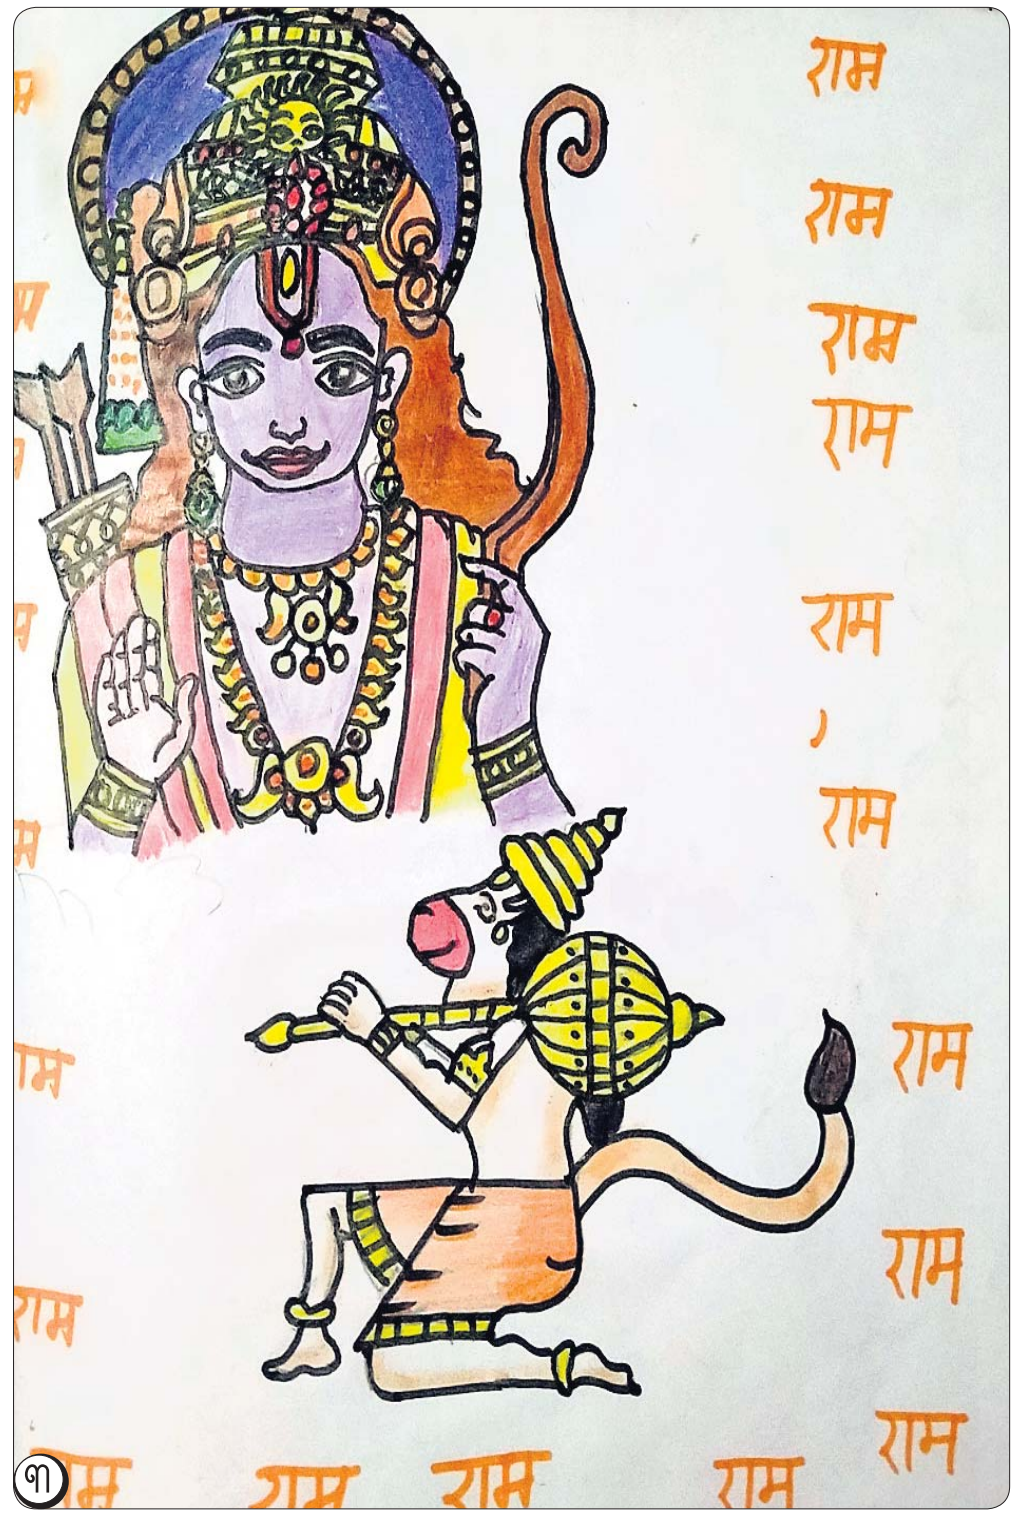 राम
राम
राम
राम
राम
राम
राम
राम
राम
राम
राम राम राम